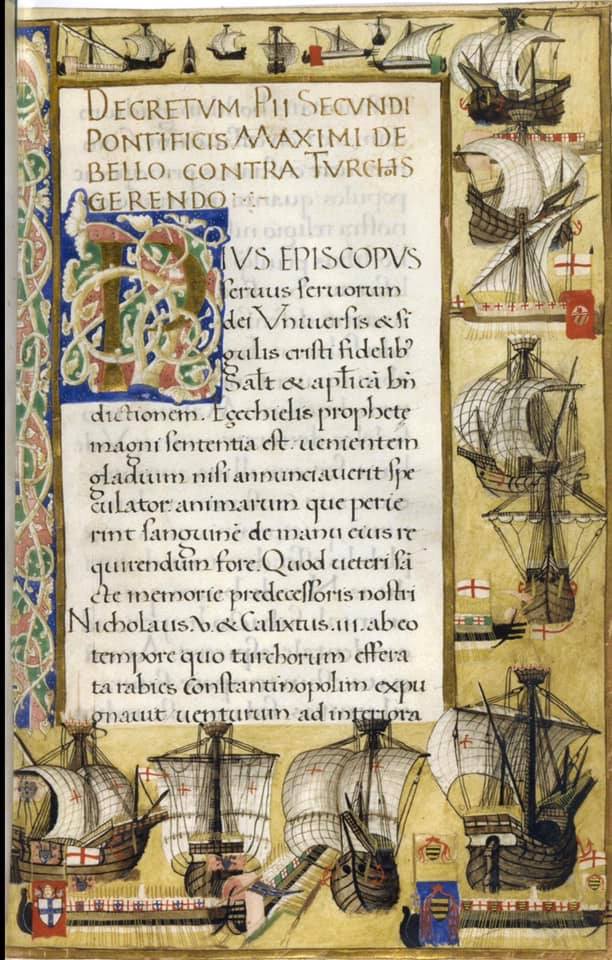 DECRETVM PII SECVNDI
PONTIFICIS MAXIMI DE
BELLO CONTRA TVRCHAS
GERENDO
PIVS EPISCOPVS
seruus seruorum
dei Vniuersis & si
gulis cristi fidelib9
Salt & aplicā bn
dictionem. Egechielis prophete
magni sententia est. uenientem
gladium nisi annunciauerit spe
culator: animarum que perie
rint sanguinē de manu eius re
quirendum fore. Quod ueteri sā
cte memorie predecessoris nostri
Nicholaus .V. & Calixtus .iii. ab eo
tempore quo turchorum effera
ta rabies Constantinopolim expu
gnauit uenturum ad interiora